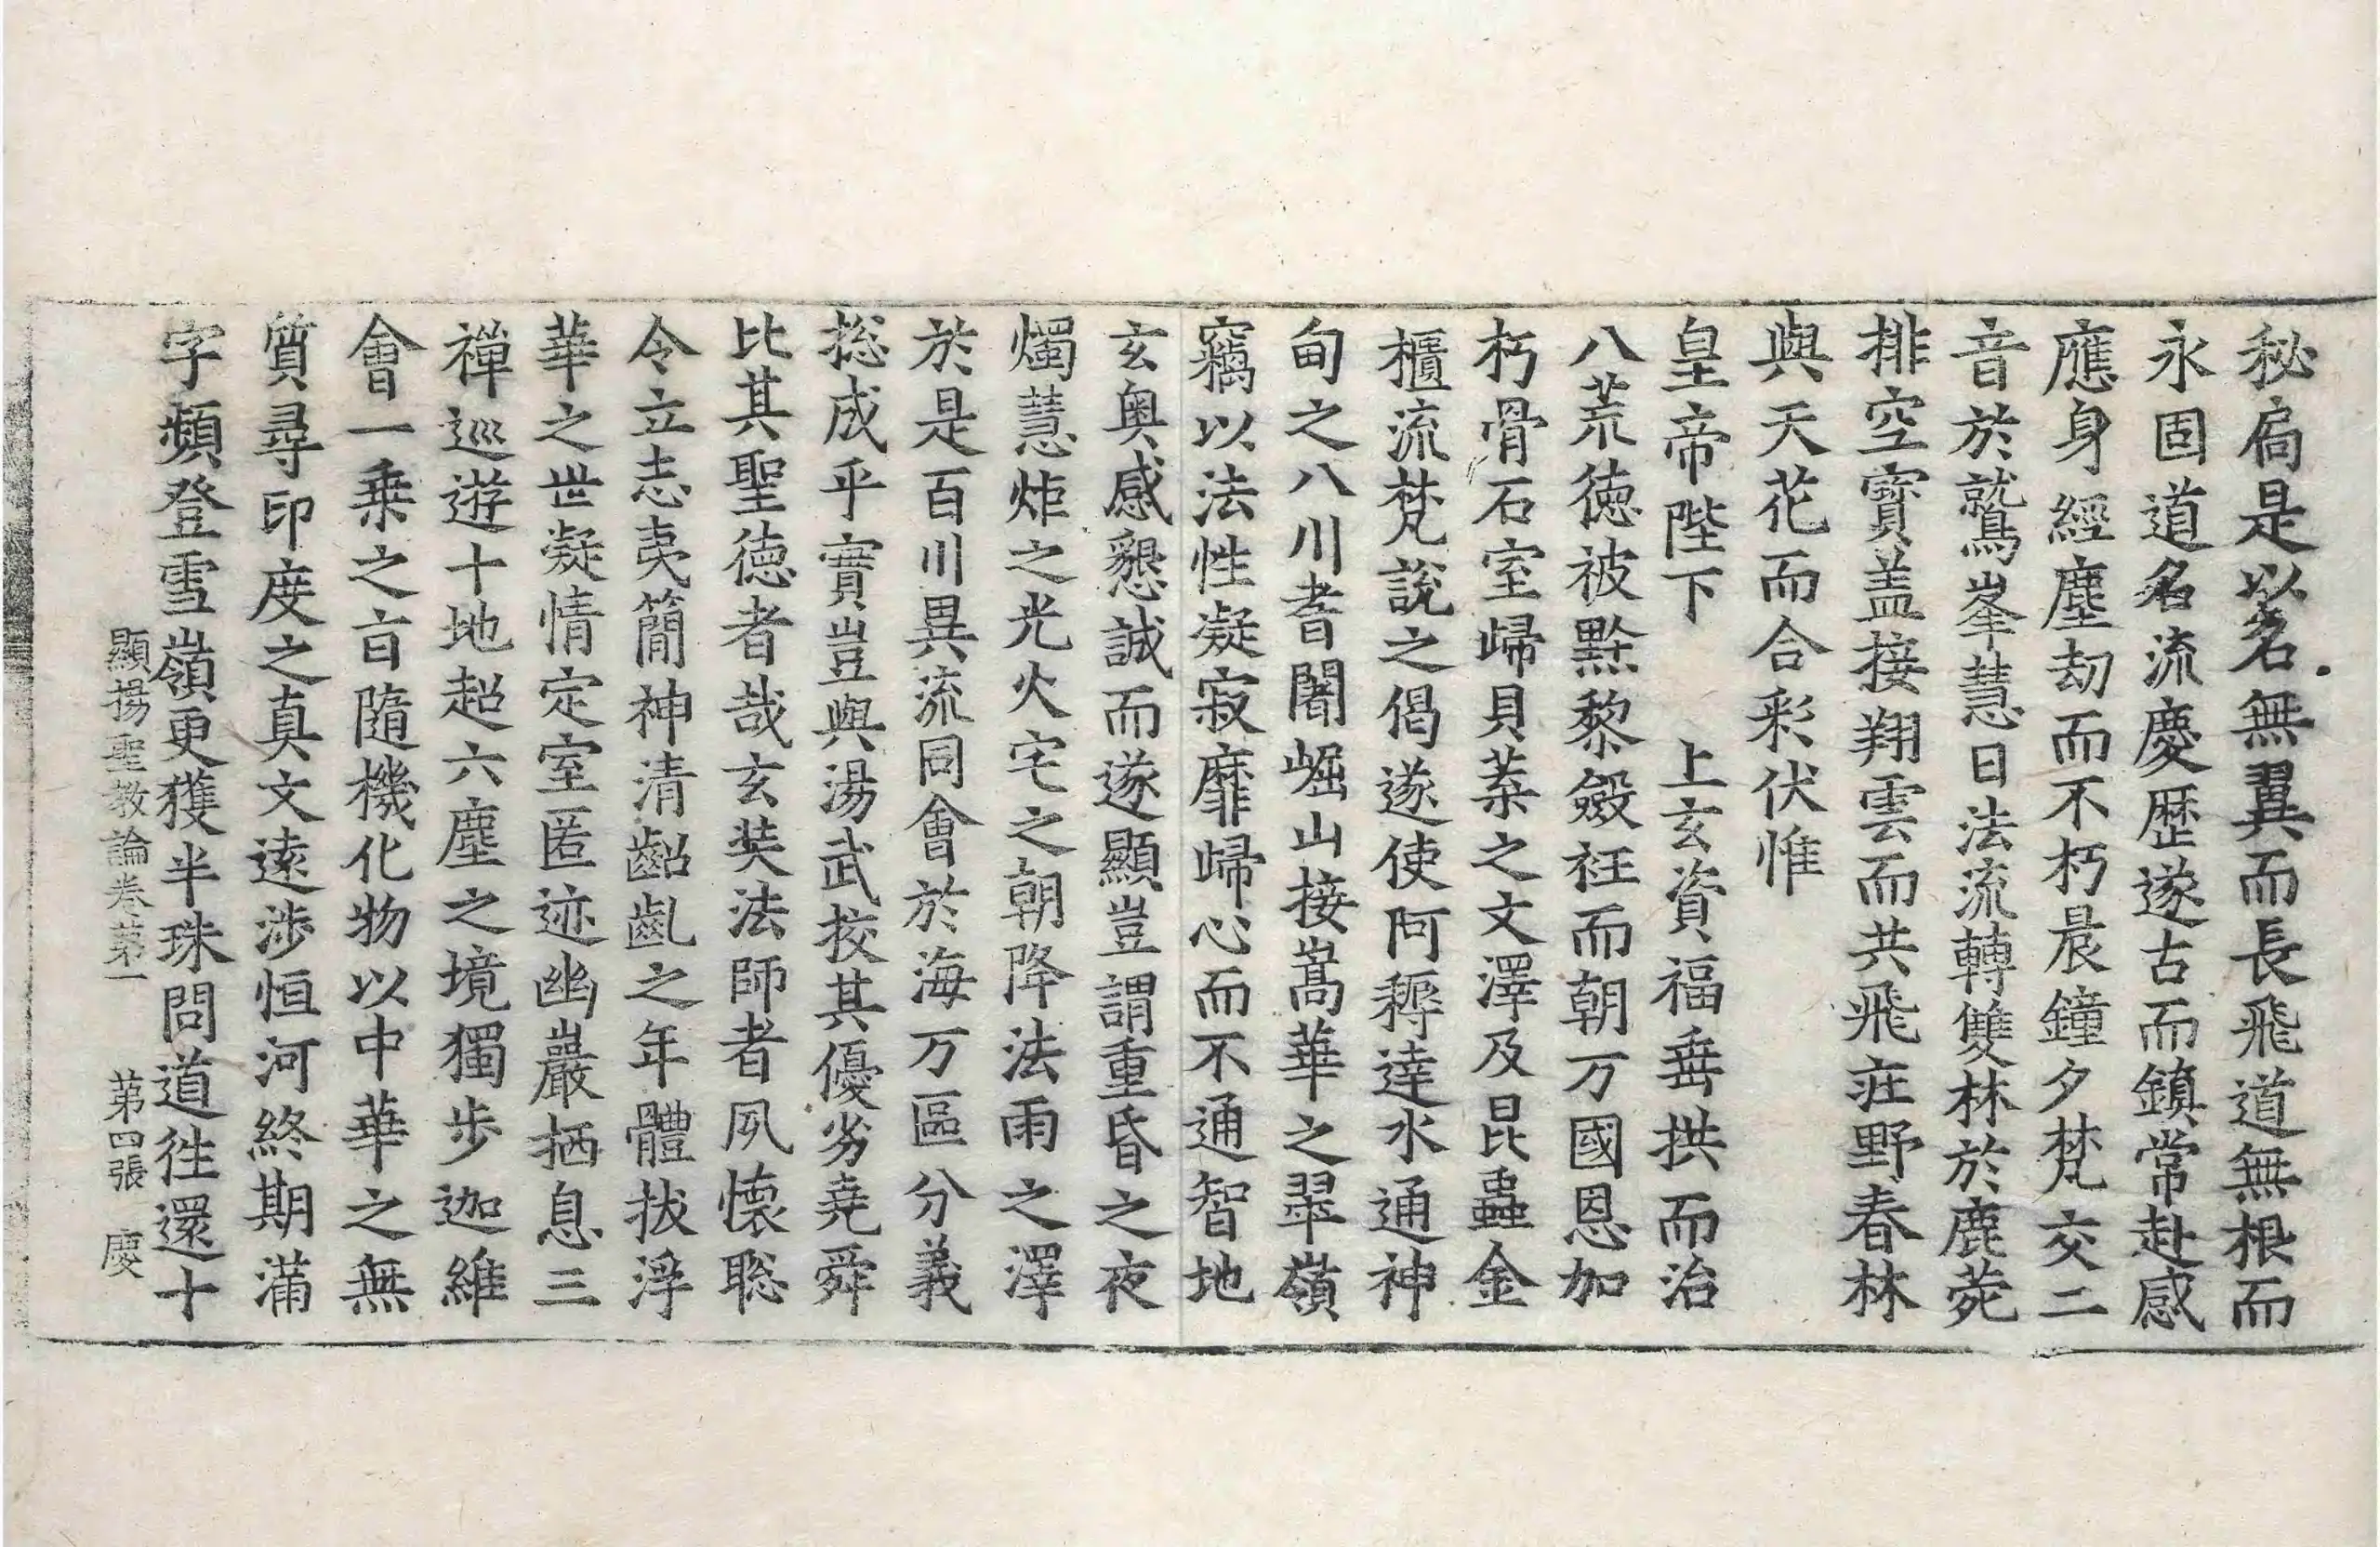 秘扃是以名無翼而長飛道無根而
永固道名流慶歷遂古而鎮常赴感
應身經塵劫而不朽晨鐘夕梵交二
音於鷲峯慧日法流轉雙林於鹿菀
排空寶盖接翔雲而共飛莊野春林
與天花而合彩伏惟
皇帝陛下　上玄資福垂拱而治
八荒徳被黔黎斂衽而朝万國恩加
朽骨石室歸貝葉之文澤及昆蟲金
櫃流梵說之偈遂使阿耨達水通神
甸之八川耆闍崛山接嵩華之翠嶺
竊以法性凝寂靡歸心而不通智地
玄奥感懇誠而遂顯豈謂重昏之夜
燭慧炬之光火宅之朝降法雨之澤
於是百川異流同會於海万區分義
揔成乎實豈與湯武挍其優劣堯舜
比其聖徳者哉玄奘法師者夙懷聡
令立志夷簡神清齠齔之年體拔浮
華之世凝情定室匿迹幽巖栖息三
禪巡遊十地超六塵之境獨步迦維
會一乗之旨隨機化物以中華之無
質尋印度之真文遠涉恒河終期滿
字頻登雪嶺更獲半珠問道往還十
顯揚聖教論卷第一　第四張　慶